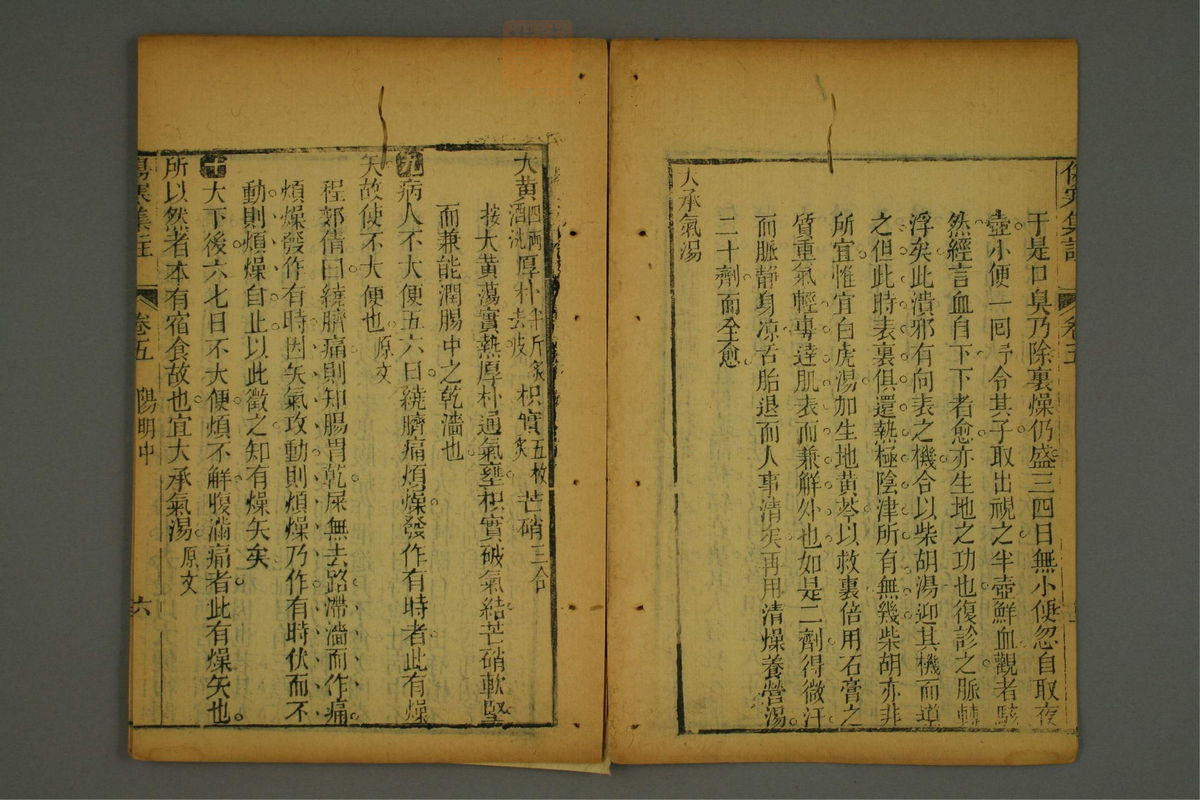 傷寒集註
卷五
于是口臭乃除裏燥仍盛三四日無小便忽自取夜
壺小便一回令其子取出視之半壺鮮血觀者駭
然經言血自下下者愈亦生地之功也復診之脈轉
浮矣此潰邪有向表之機合以柴胡湯迎其機而導
之但此時表裏俱還熱極陰津所有無幾柴胡亦非
所宜惟宜白虎湯加生地黃芩以救裏倍用石膏之
質重氣輕專達肌表而兼解外也如是二劑得微汗
而脈静身凉舌胎退而人事清矣再用清燥養營湯
二十劑而全愈
大承氣湯
大黃四兩酒洗厚朴半斤炙去皮枳實五枚炙芒硝三合
按大黃蕩實熱厚朴通氣壅枳實破氣結芒硝軟堅
而兼能潤腸中之乾濇也
九病人不大便五六日繞臍痛煩燥發作有時者此有燥
矢故使不大便也原文
程郊倩曰繞臍痛則知腸胃乾屎無去路滯濇而作痛
煩燥發作有時因矢氣攻動則煩燥乃作有時伏而不
動則煩燥自止以此徵之知有燥矢矣
十大下後六七日不大便煩不解腹滿痛者此有燥矢也
所以然者本有宿食故也宜大承氣湯原文
傷寒集註
卷五
陽明中
六